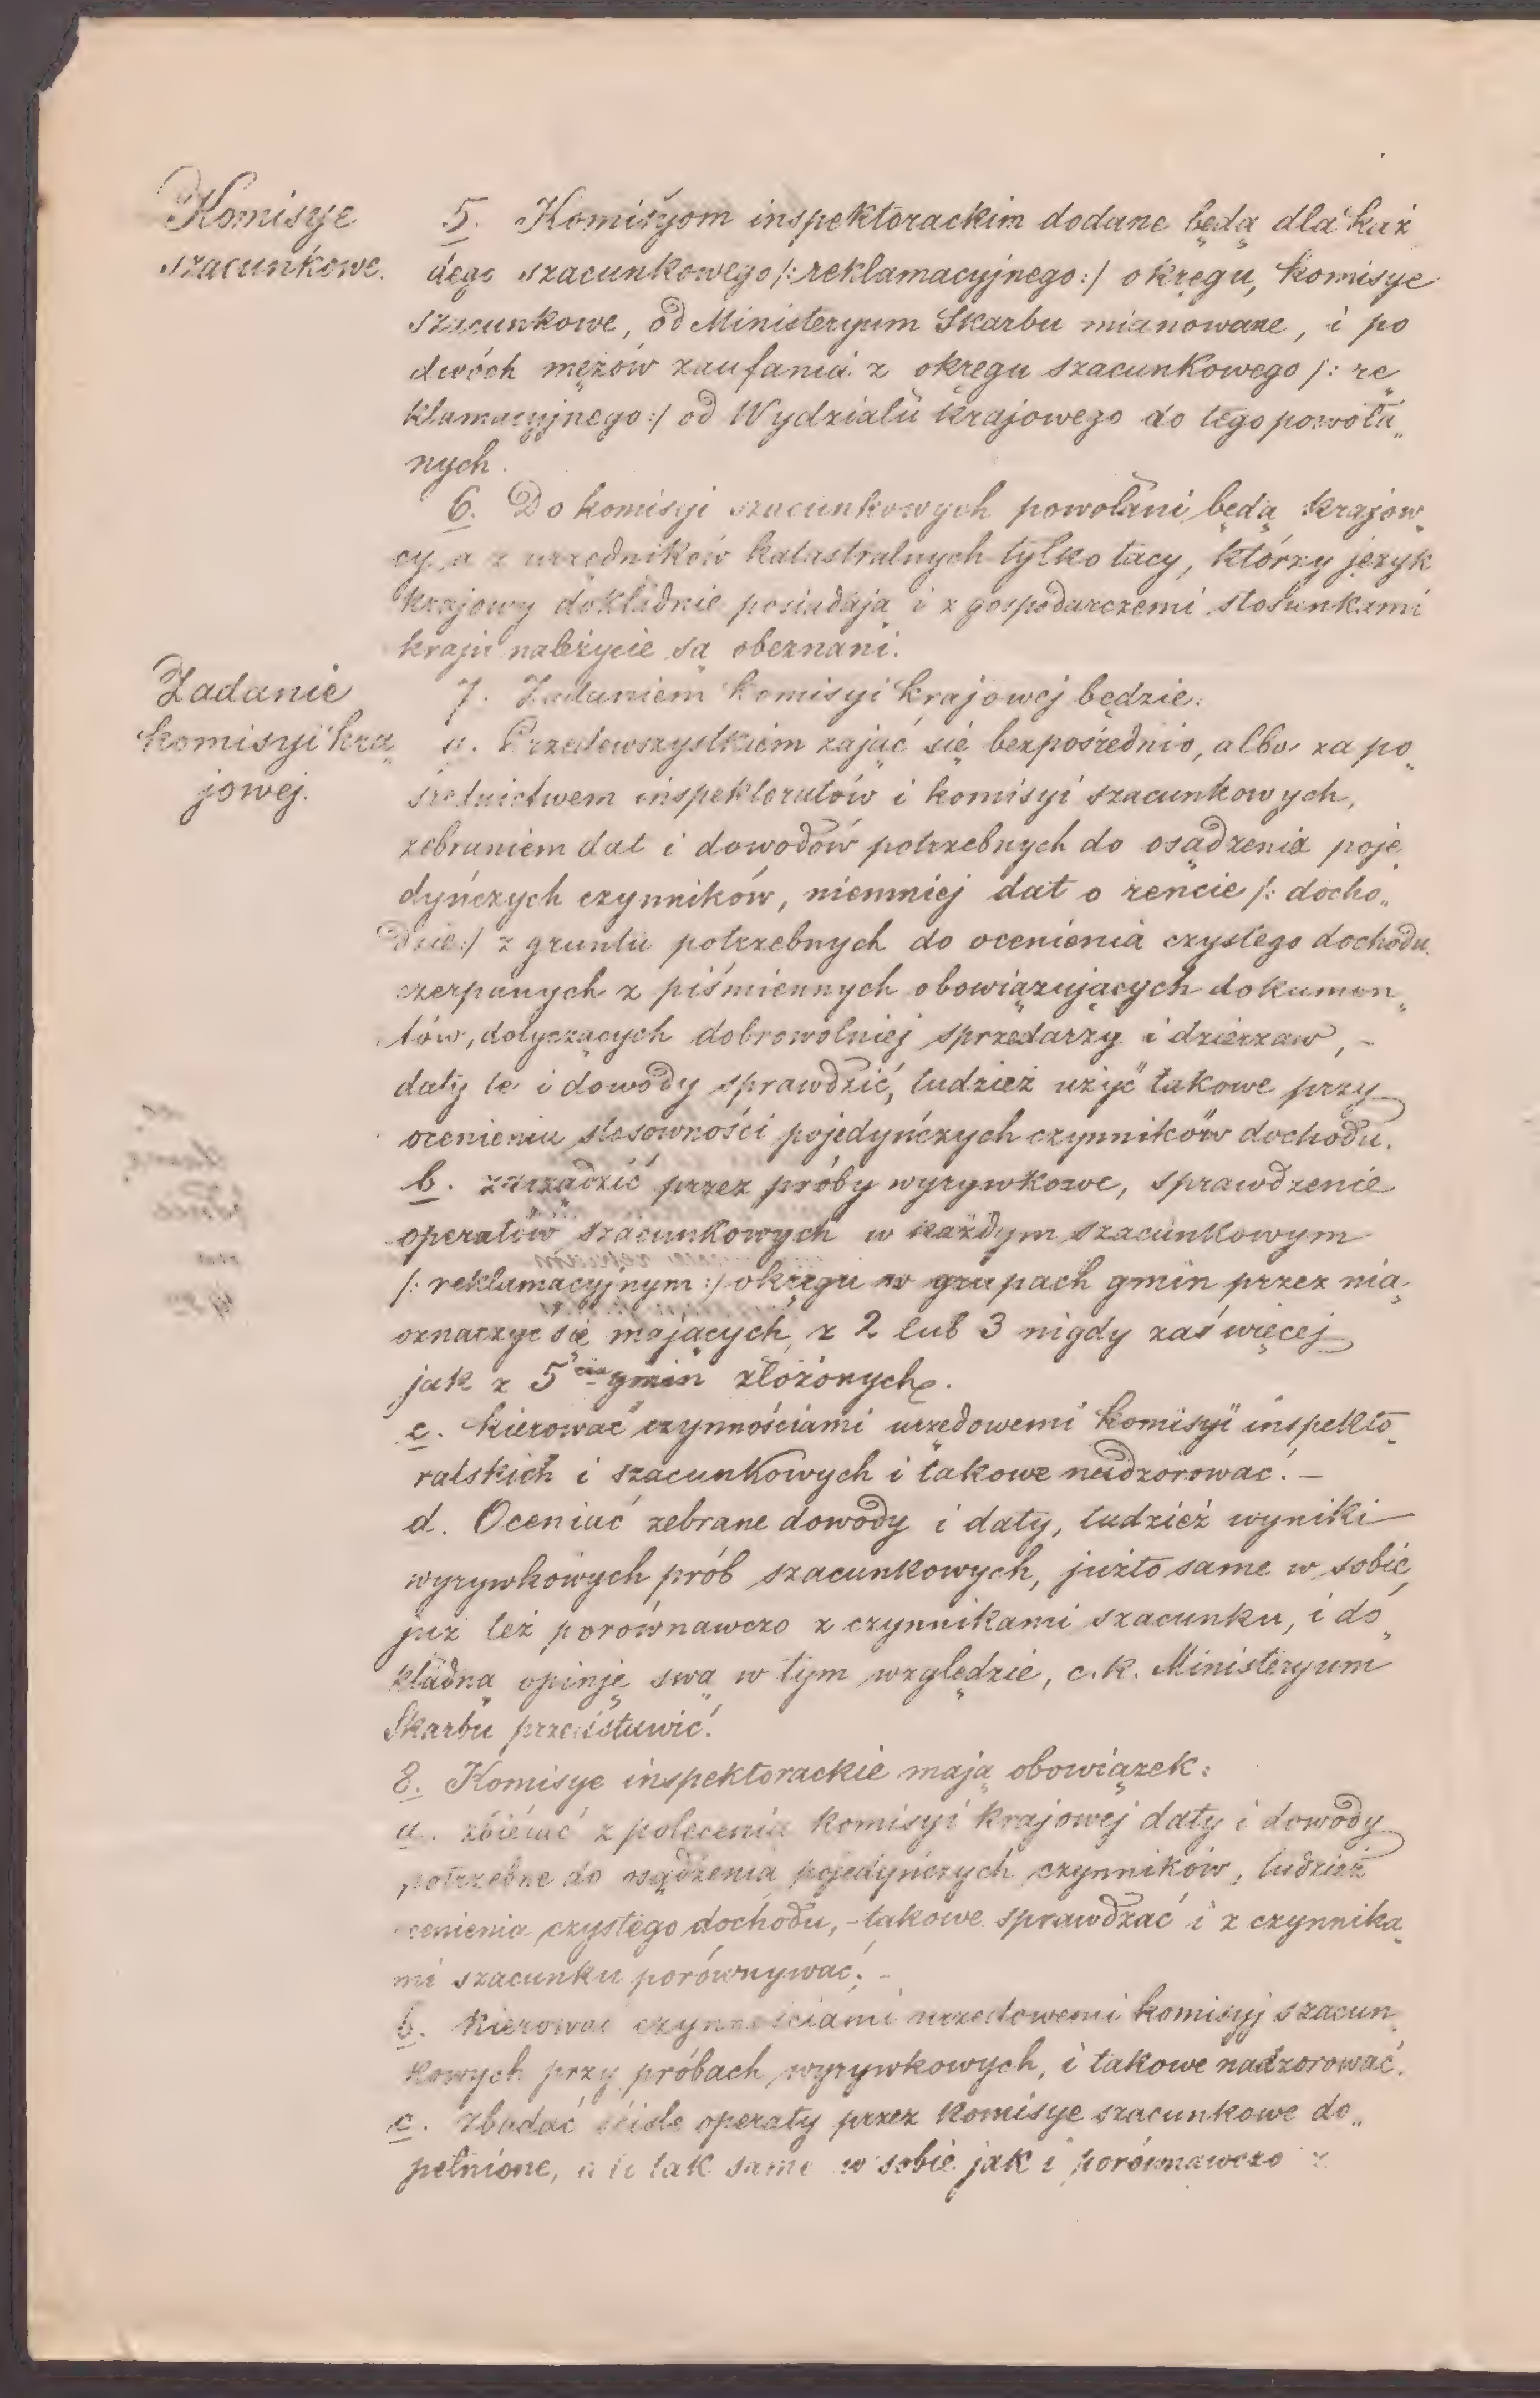 Komisye
szacunkowe.
5. Komisyom inspektorackim dodane będą dla każ
dego szacunkowego /:reklamacyjnego:/ okręgu, komisye
szacunkowe, od Ministeryum Skarbu mianowane, i po
dwóch mężów zaufania z okręgu szacunkowego /: re„
klamacyjnego:/ od Wydziału krajowego do tego powoła„
nych.
6. Do komisyi szacunkowych powołani będą krajow„
cy, a z urzędników katastralnych tylko tacy, którzy język
krajowy dokładnie posiadają i z gospodarczemi stosunkami
kraju należycie są obeznani.
Zadanie
komisyi kra„
jowej.
7. Zadaniem komisyi krajowej będzie:
a. Przedewszystkiem zająć się bezpośrednio, albo za po„
średnictwem inspektoratów i komisyi szacunkowych,
zebraniem dat i dowodów potrzebnych do osądzenia poje„
dyńczych czynników, niemniej dat o rencie /: docho„
dzie:/ z gruntu potrzebnych do ocenienia czystego dochodu
czerpanych z piśmiennych obowiązujących dokumen„
tów, dotyczących dobrowolniej sprzedarzy i dzierzaw, –
daty te i dowody sprawdzić, tudzież użyć takowe przy
ocenieniu stosowności pojedyńczych czynników dochodu.
b. zarządzić przez próby wyrywkowe, sprawdzenie
operatów szacunkowych w każdym szacunkowym
/: reklamacyjnym :/ okręgu w grupach gmin przez nią
oznaczyć się mających, z 2 lub 3 nigdy zaś więcej
jak z 5 ciu gmin złożonych.
c. kierować czynnościami urzędowemi komisyi inspekto„
ratskich i szacunkowych i takowe nadzorować. –
d. Oceniać zebrane dowody i daty, tudzież wyniki
wyrywkowych prób szacunkowych, jużto same w sobie,
już też porównawczo z czynnikami szacunku, i do„
kładną opinję swą w tym względzie, c.k. Ministeryum
Skarbu przedstawić.
8. Komisye inspektorackie mają obowiązek:
a. zbierać z polecenia komisyi krajowej daty i dowody
potrzebne do osądzenia pojedyńczych czynników, tudzież
ocenienia czystego dochodu, – takowe sprawdzać i z czynnika„
mi szacunku porównywać; –
b. kierować czynnościami urzędowemi komisyj szacun„
kowych przy próbach wyrywkowych, i takowe nadzorować.
c. zbadać ściśle operaty przez komisye szacunkowe do„
pełnione, a to tak same w sobie jak i porównawczo z